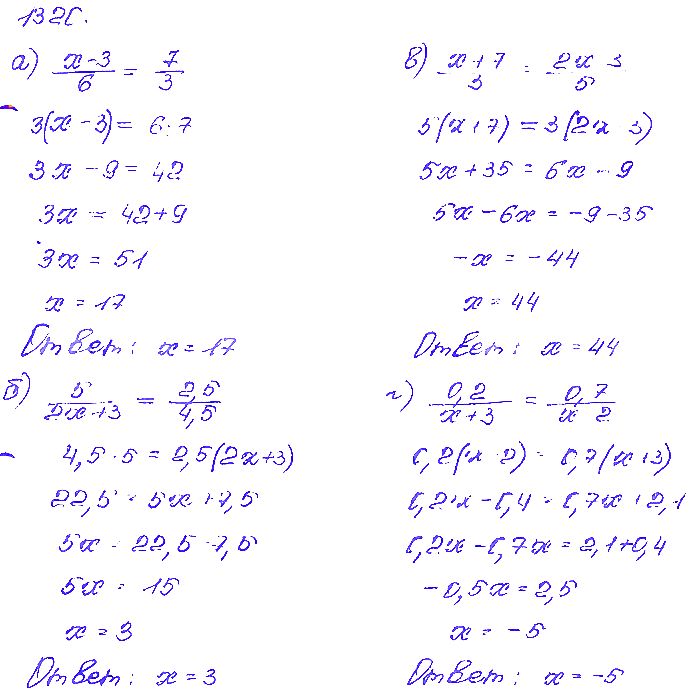 1320.
а) (x-3)/6 = 7/3
3(x-3) = 6·7
3x - 9 = 42
3x = 42+9
3x = 51
x = 17
Ответ: x = 17
б) 5/(2x+3) = 2,5/4,5
4,5·5 = 2,5(2x+3)
22,5 = 5x+7,5
5x = 22,5-7,5
5x = 15
x = 3
Ответ: x = 3
в) (x+7)/3 = (2x-3)/5
5(x+7) = 3(2x-3)
5x+35 = 6x-9
5x-6x = -9-35
-x = -44
x = 44
Ответ: x = 44
г) 0,2/(x+3) = 0,7/(x-2)
0,2(x-2) = 0,7(x+3)
0,2x-0,4 = 0,7x+2,1
0,2x-0,7x = 2,1+0,4
-0,5x = 2,5
x = -5
Ответ: x = -5